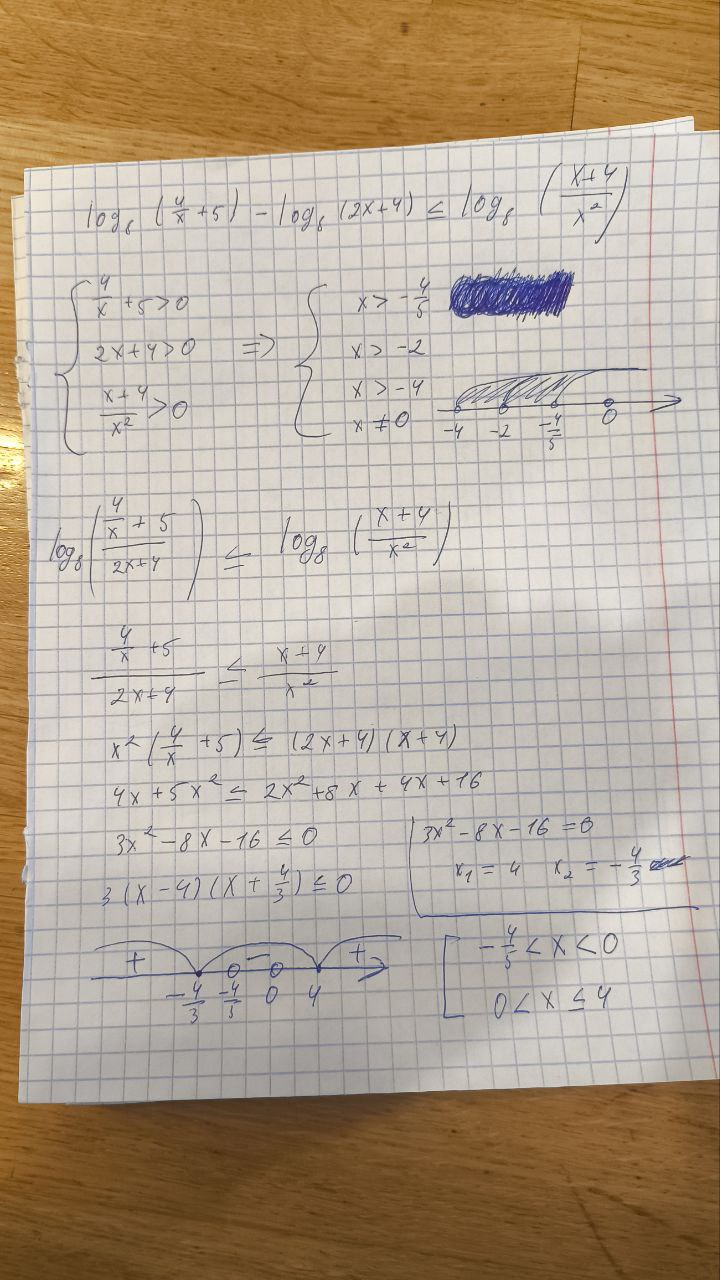 log₈ (4/x + 5) - log₈ (2x+4) ≤ log₈ ((x+4)/x²)
{ 4/x + 5 > 0
2x+4 > 0
(x+4)/x² > 0
=> { x > -4/5
x > -2
x > -4
x ≠ 0
-4 -2 -4/5 0
log₈ ((4/x + 5)/(2x+4)) ≤ log₈ ((x+4)/x²)
(4/x + 5)/(2x+4) ≤ (x+4)/x²
x² (4/x + 5) ≤ (2x+4) (x+4)
4x + 5x² ≤ 2x² + 8x + 4x + 16
3x² - 8x - 16 ≤ 0
3 (x - 4) (x + 4/3) ≤ 0
3x² - 8x - 16 = 0
x₁ = 4 x₂ = -4/3
+ - +
-4/3 -4/5 0 4
[ -4/5 < x < 0
0 < x ≤ 4